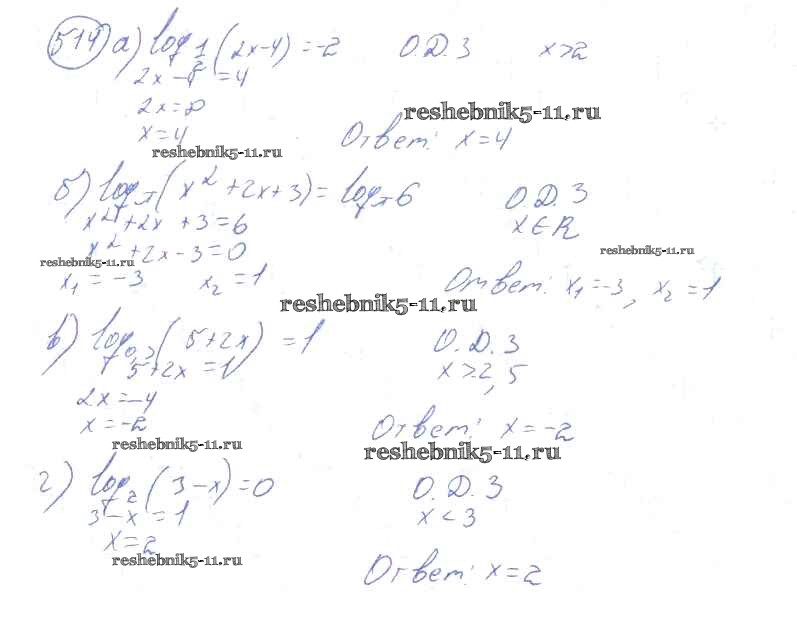 514 а) log 1/2 (2x-4) = -2 О.Д.З x>2
2x-4 = 4
2x=8
reshebnik5-11.ru
x=4 Ответ: x=4
reshebnik5-11.ru
б) logπ(x² + 2x+3) = logπ 6 О.Д.З
x²+2x +3=6 x∈R
x²+2x-3=0 reshebnik5-11.ru
reshebnik5-11.ru
x₁ = -3 x₂ = 1 Ответ: x₁=-3, x₂ = 1
reshebnik5-11.ru
в) log0,3(5+2x) = 1 О.Д.З
5+2x = 1 x>2,5
2x=-4
x=-2 Ответ: x=-2
reshebnik5-11.ru
reshebnik5-11.ru
г) log₂(3-x)=0 О.Д.З
3-x = 1 x<3
x=2
reshebnik5-11.ru
Ответ: x=2